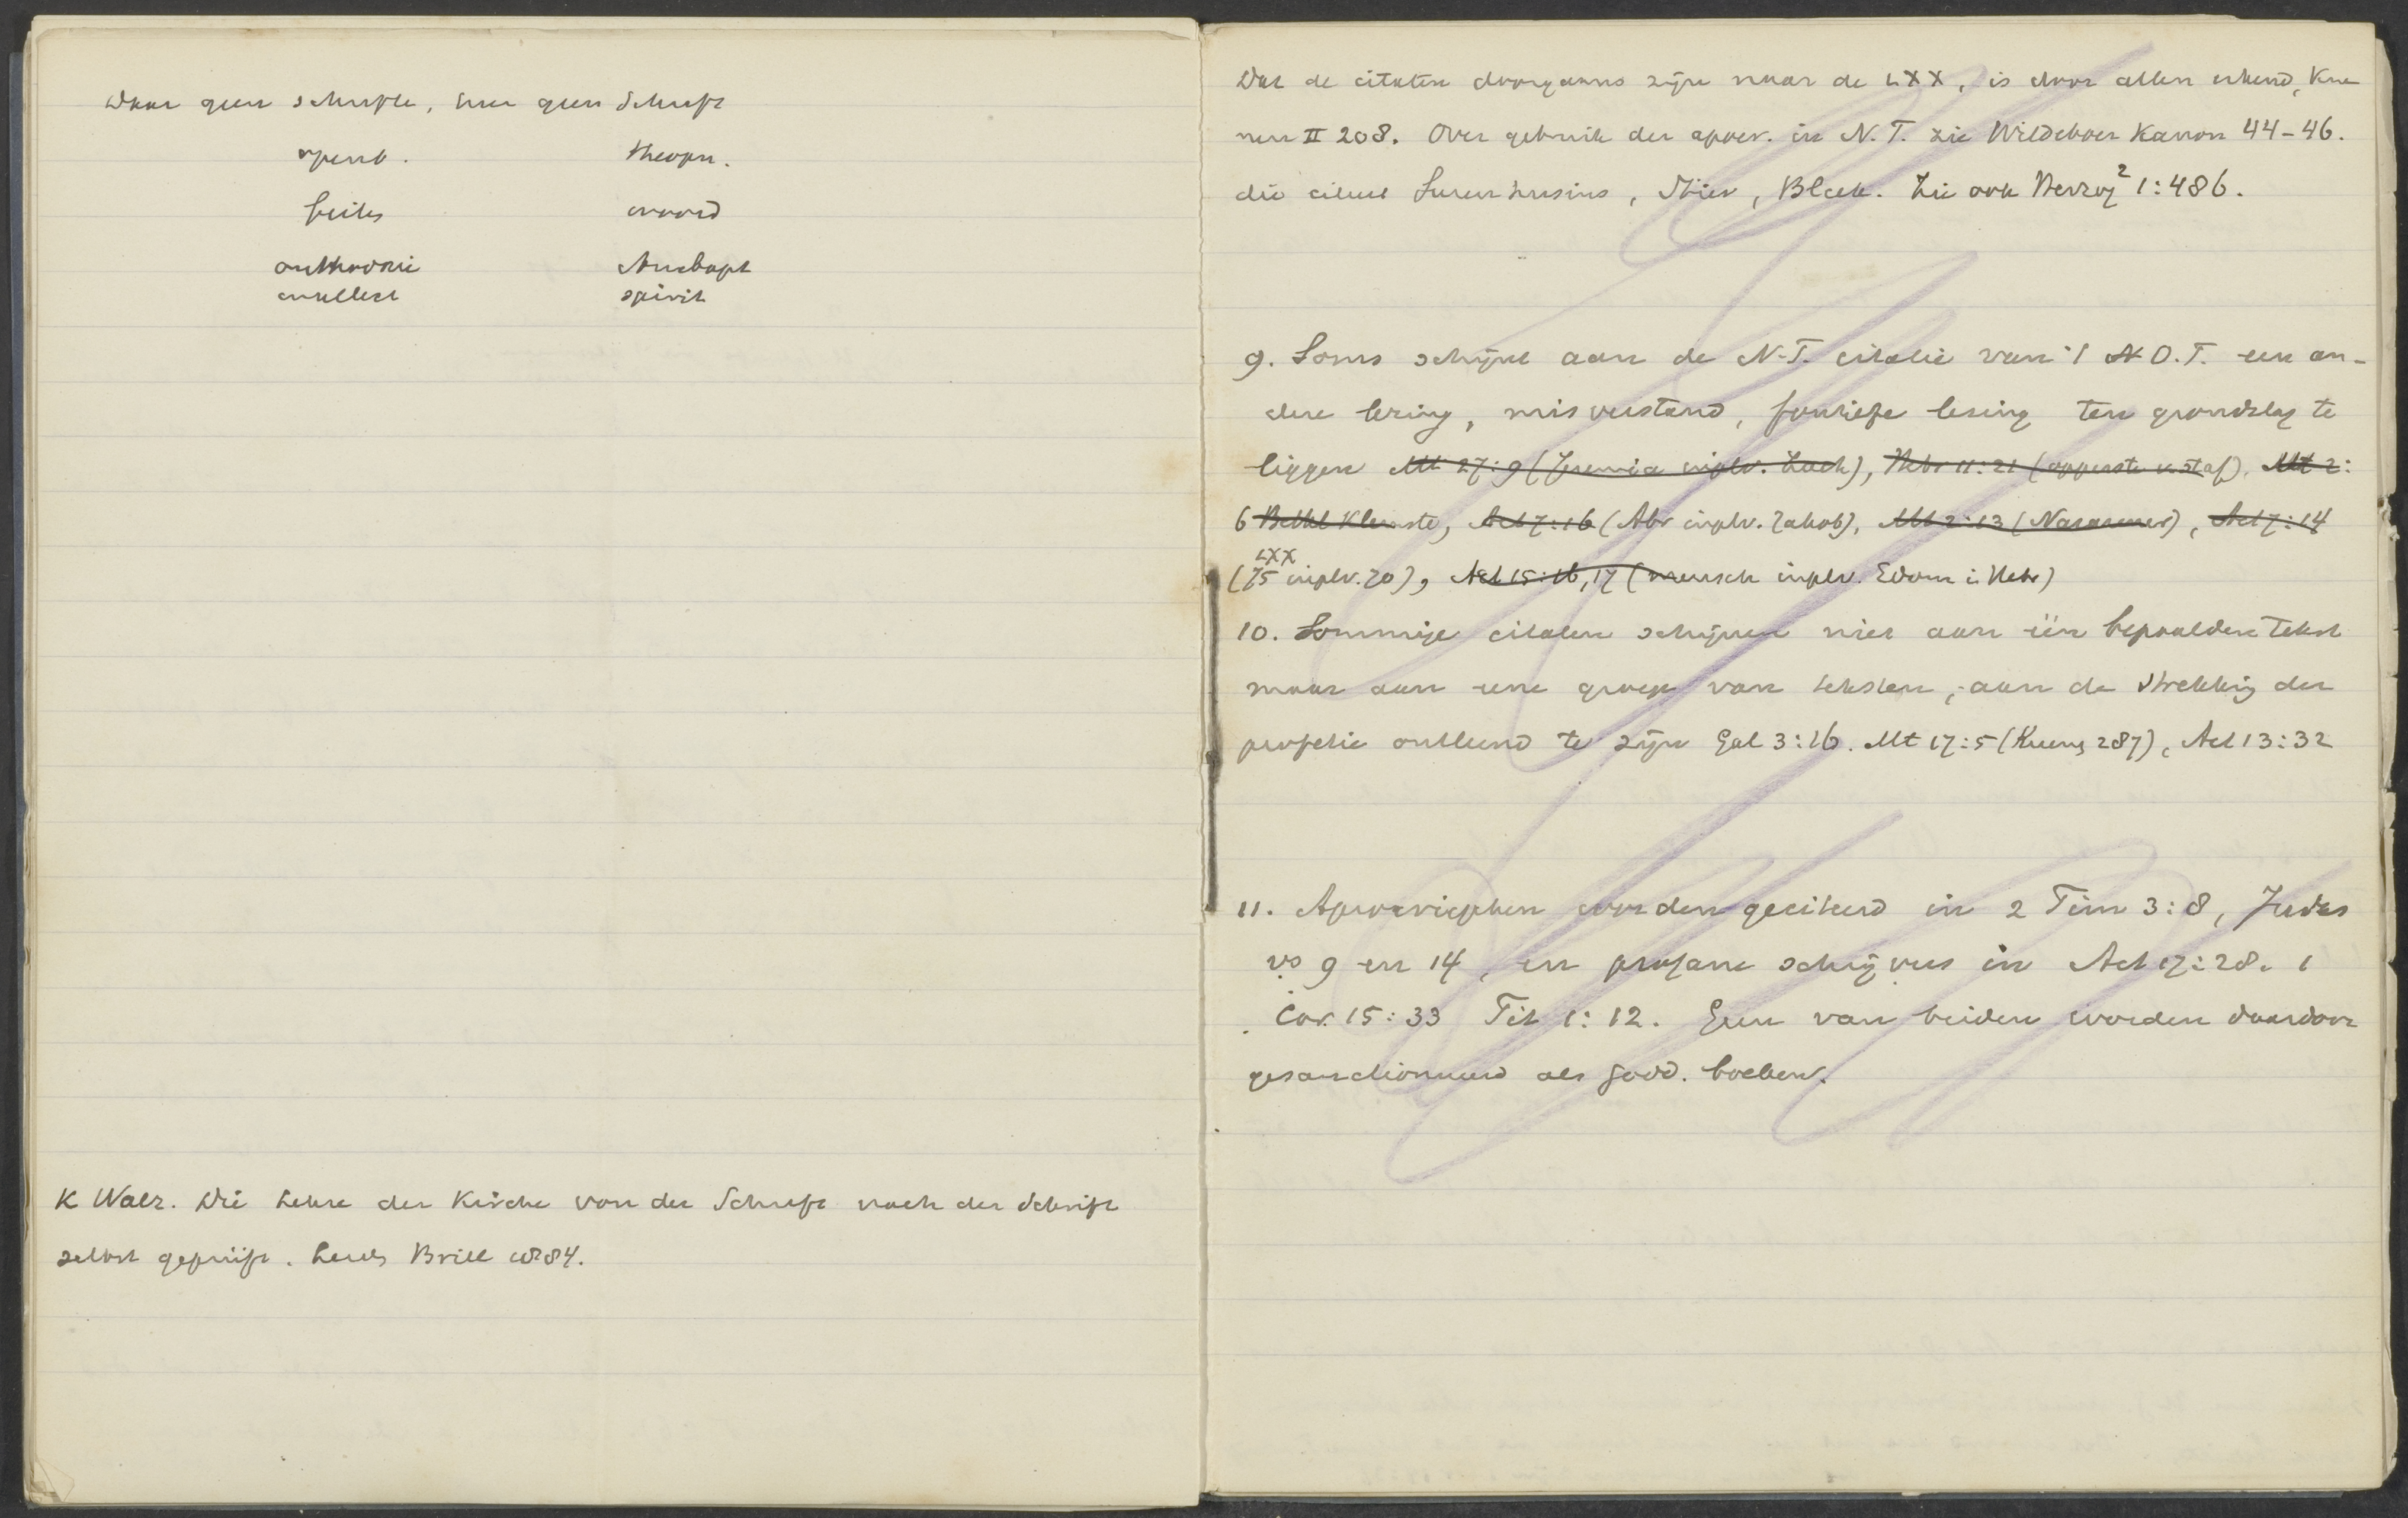 Waar geen schrifte, hier geen Schrift
openb. theopn.
feiten woord
orthodoxie Anabapt
intellect spirit
K Walz. Die Lehre der Kirche von der Schrift nach der Schrift
selbst geprüft. Leid, Brill 1884.
Dat de citaten doorgaans zijn naar de LXX, is door allen erkend, Kue
nen II 208. Over gebruik der apocr. in N.T. zie Wildeboer Kanon 44-46.
die citeert Surenhusius, Stier, Bleek. Zie ook Herzog² 1:486.
9. Soms schijnt aan de N.T. citatie van 't N O.T. een an-
dere lezing, misverstand, foutieve lezing ten grondslag te
liggen Mt 27:9 (Jeremia inplv. Zach), Hebr 11:21 (opperste v. staf), Mt 2:
6 Bethl kleinste, Act 7:16 (Abr inplv. Jakob), Mt 2:23 (Nazarener), Act 7:14
LXX
(75 inplv. 70), Act 15:16,17 (mensch inplv. Edom in Hebr)
10. Sommige citaten schijnen niet aan één bepaalden tekst
maar aan eene groep van teksten, aan de strekking der
profetie ontleend te zijn Gal 3:16. Mt 17:5 (Kuen, 287), Act 13:32
11. Apocriephen worden geciteerd in 2 Tim 3:8, Judas
vs 9 en 14, en profane schrijvers in Act 17:28. 1
Cor. 15:33 Tit 1:12. Geen van beiden worden daardoor
gesanctionneerd als godd. boeken.